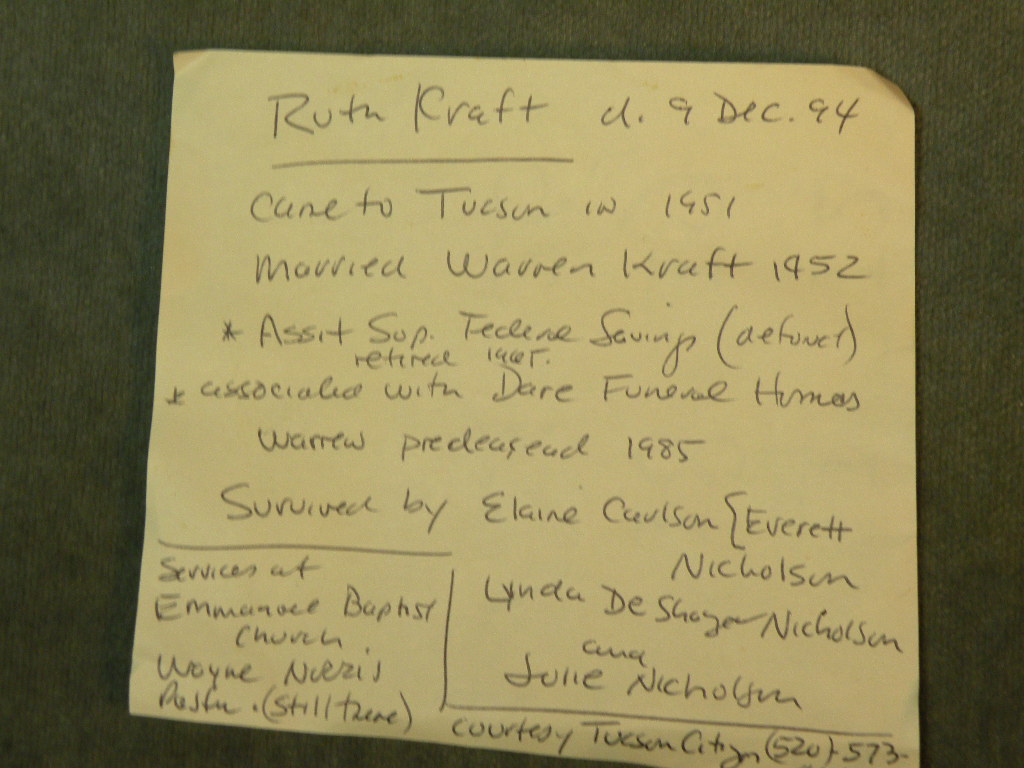 Ruth Kraft d. 9 Dec. 94
Came to Tucson in 1951
Married Warren Kraft 1952
* Assit Sup. Federal Savings (defunct)
retired
* associated with Dare Funeral Homes
Warren predeceased 1985
Survived by Elaine Carlson { Everett
Nicholson
Lynda De Shayer Nicholson
and
Julie Nicholson
Services at
Emmanuel Baptist
Church
Wayne
Pastor. (Still there)
courtesy Tucson Citizen (520)-573-